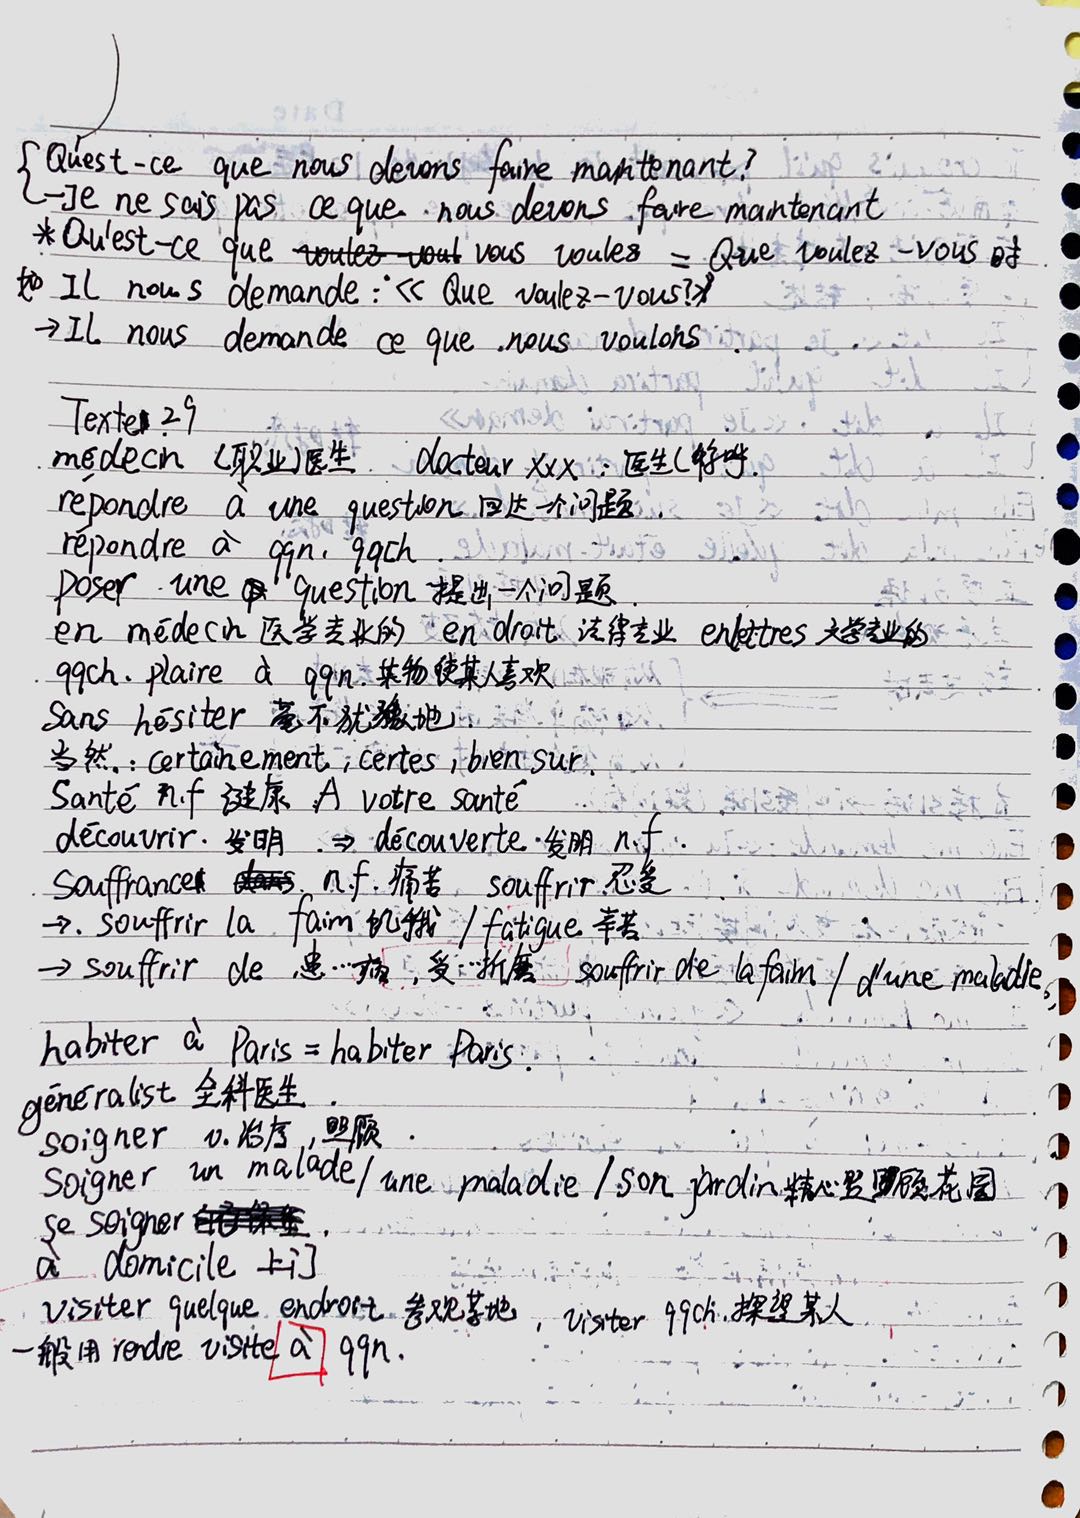 Qu'est-ce que nous devons faire maintenant?
→Je ne sais pas ce que nous devons faire maintenant
*Qu'est-ce que vous voulez = Que voulez-vous 时
如 Il nous demande: << Que voulez-vous?>>
→ Il nous demande ce que nous voulons.
Texte 29
médecin (职业)医生 docteur xxx: 医生(称呼
répondre à une question 回达一个问题.
répondre à qqn. qqch.
Poser une question 提出一个问题.
en médecin 医学专业的 en droit 法得专业 en lettres 文学专业的
qqch. plaire à qqn. 某物使某人喜欢
Sans hésiter 毫不犹豫地.
当然: certainement, certes, bien sur.
Santé n.f 健康 A votre santé
découvrir. 发明 ⇒ découverte. 发明 n.f.
Souffrance n.f. 痛苦 souffrir 忍受
→ souffrir la faim 饥饿 / fatigue 辛苦
→ souffrir de 患…病, 受…折磨 souffrir de la faim / d'une maladie.
habiter à Paris = habiter Paris.
généralist 全科医生.
soigner v. 治疗, 照顾.
Soigner un malade/ une maladie / son jardin 精心照顾花园
se soigner.
à domicile 上门
visiter quelque endroit 参观某地, visiter qqch. 探望某人
一般用 rendre visite à qqn.